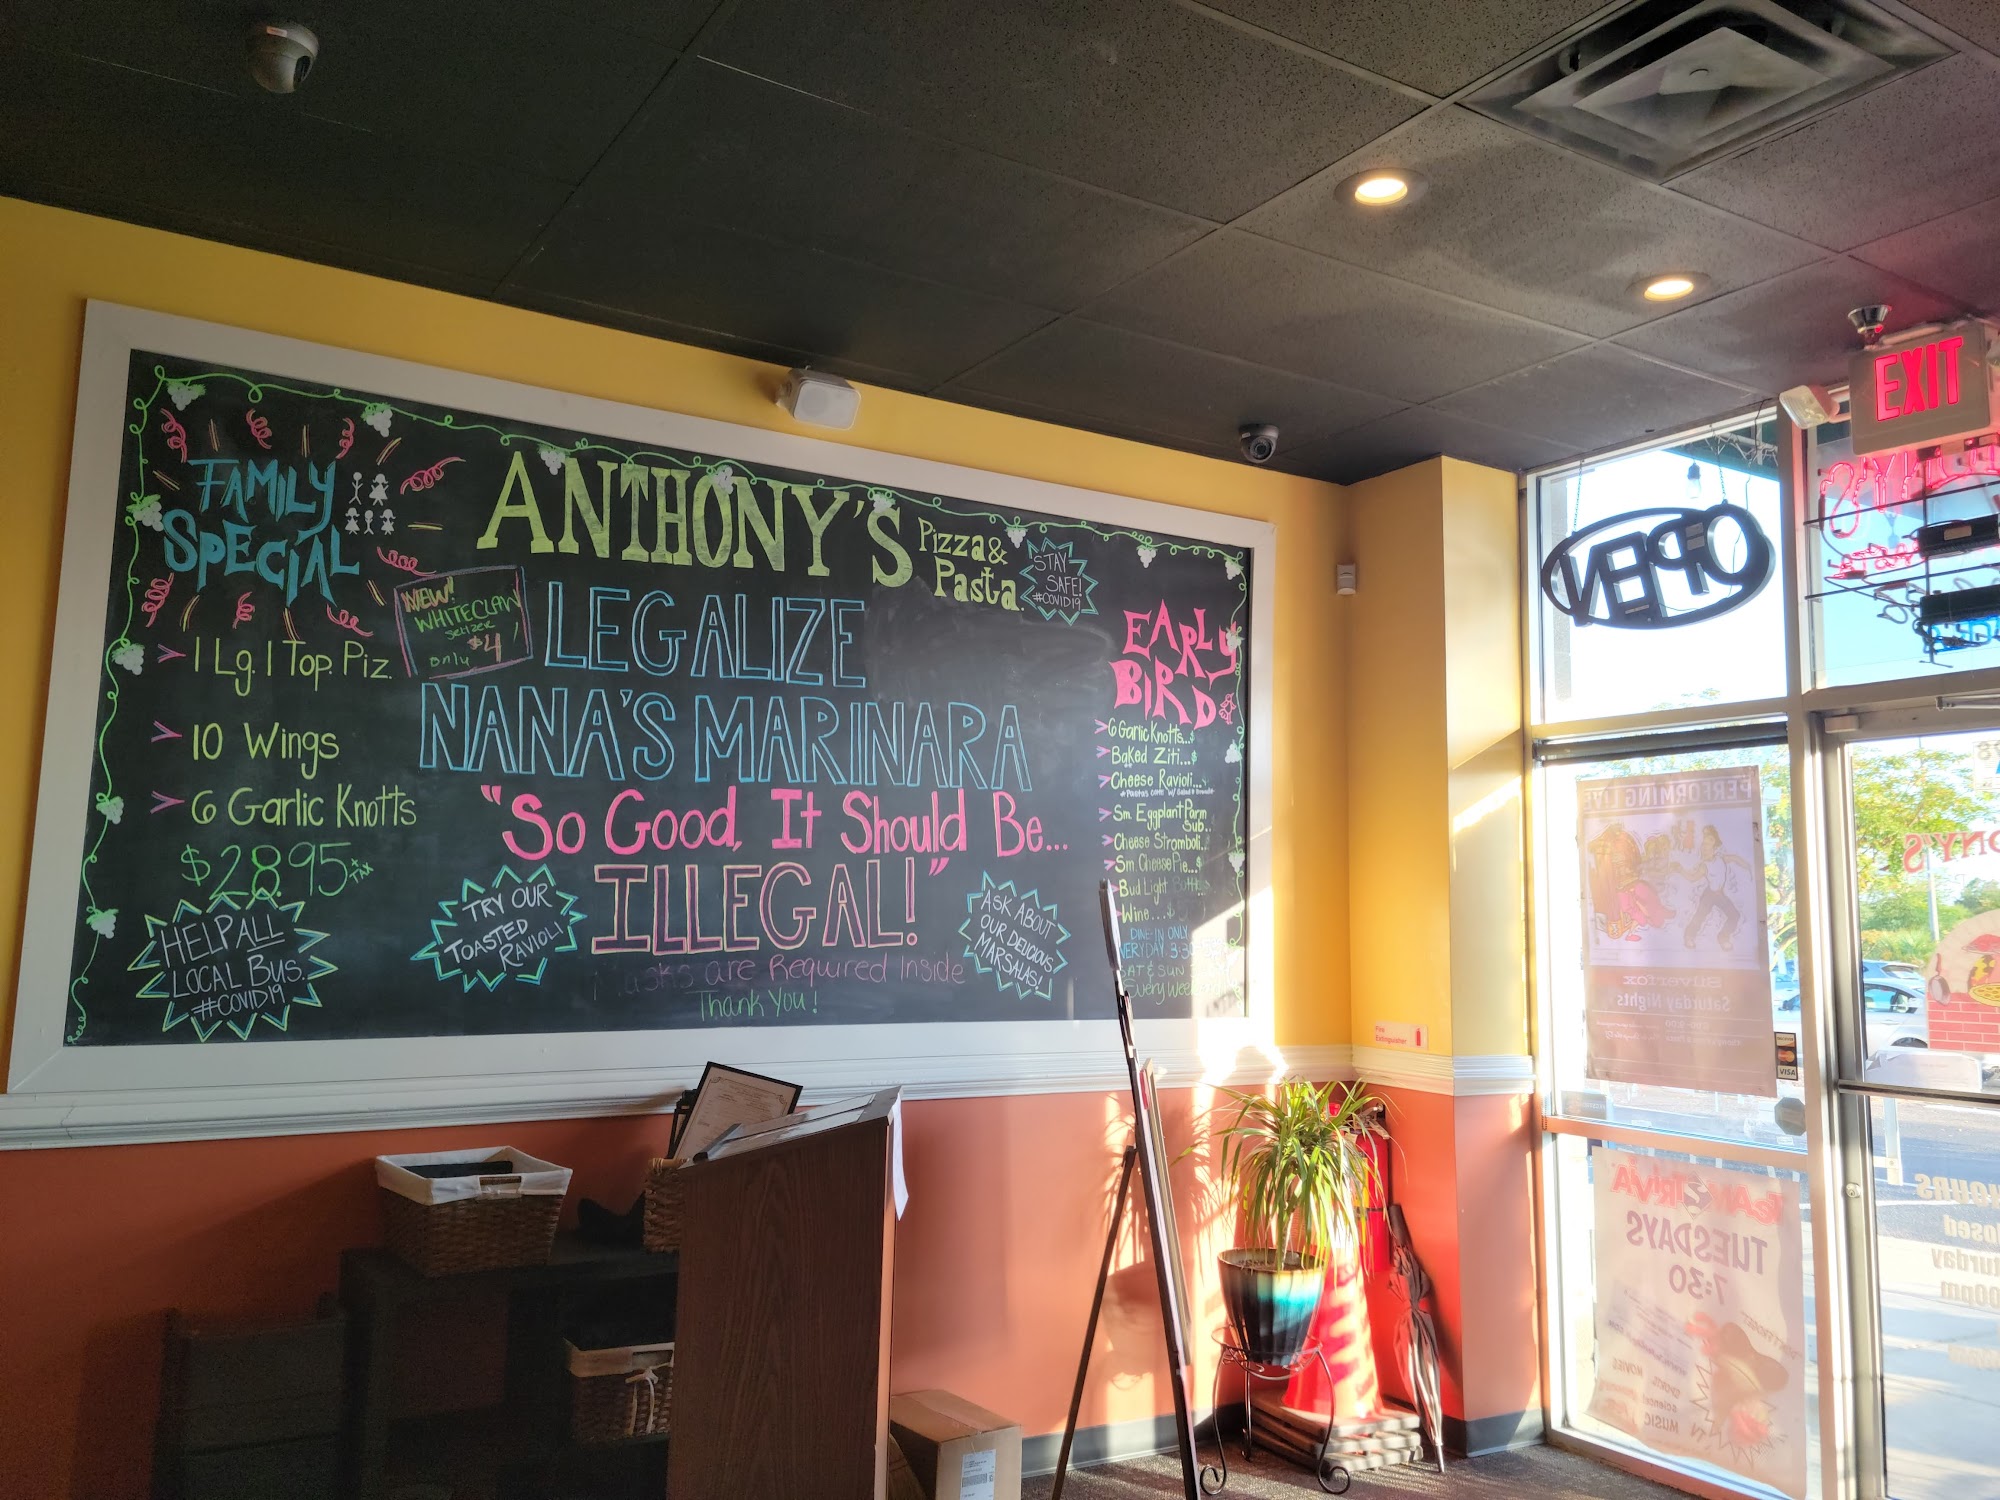 FAMILY
SPECIAL
1 Lg. 1 Top. Piz.
10 Wings
6 Garlic Knotts
$28.95 + TAX
HELP ALL
LOCAL BUS.
#COVID19
NEW!
WHITECLAW
SELTZER
only $4!
ANTHONY'S
Pizza &
Pasta.
STAY
SAFE!
#COVID19
LEGALIZE
NANA'S MARINARA
"So Good, It Should Be...
ILLEGAL!"
TRY OUR
TOASTED
RAVIOLI
ASK ABOUT
OUR DELICIOUS
MARSALAS!
Masks are Required Inside
Thank You!
EARLY
BIRD
6 Garlic Knotts...$
Baked Ziti...$
Cheese Ravioli...$
Sm. Eggplant Parm
Sub..
Cheese Stromboli..
Sm. Cheese Pie...$
Bud Light Bottle
Wine...$
DINE-IN ONLY
EVERYDAY 3:30
SAT & SUN
Every Week
EXIT
OPEN
PERFORMING LIVE
Silverfox
Saturday Nights
Fire
Extinguisher
VISA
TEAM TRIVIA
TUESDAYS
7:30
MOVIES
SPORTS
SCIENCE
MUSIC
TV
HOURS